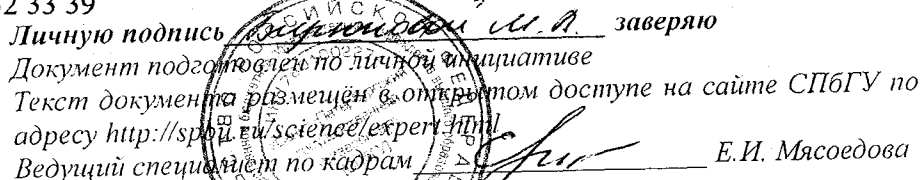 2 33 39
Личную подпись М. В. заверяю
Документ подготовлен по личной инициативе
Текст документа размещен в открытом доступе на сайте СПбГУ по
адресу http://spbu.ru/science/expert.html
Ведущий специалист по кадрам Е.И. Мясоедова